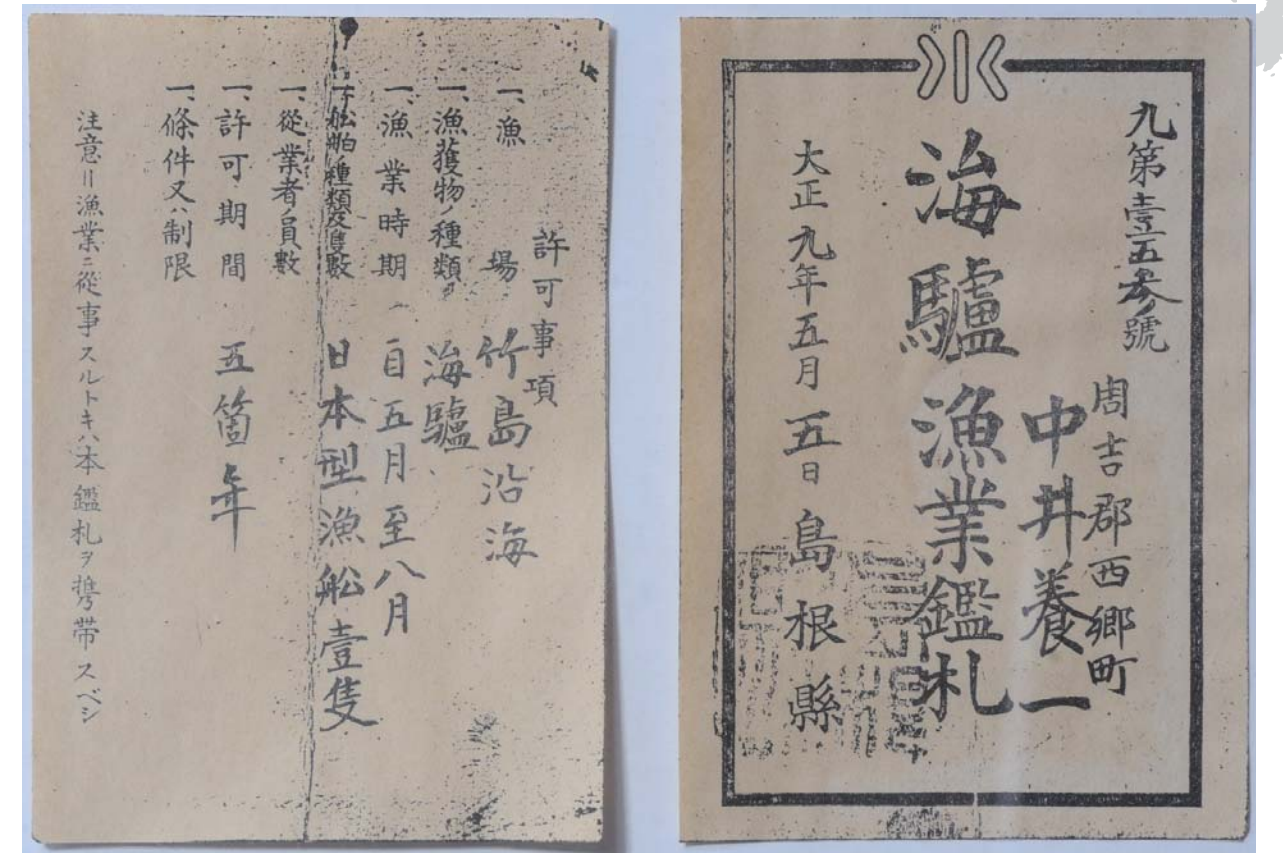 九第壹五参號
周吉郡西郷町
中井養一
海驢漁業鑑札
大正九年五月五日
島根縣
許可事項
一、漁場 竹島沿海
一、漁獲物ノ種類 海驢
一、漁業時期 自五月至八月
一、船舶種類及隻數 日本型漁船壹隻
一、從業者ノ員數
一、許可期間 五箇年
一、條件又ハ制限
注意=漁業ニ從事スルトキハ本鑑札ヲ携帯スベシ